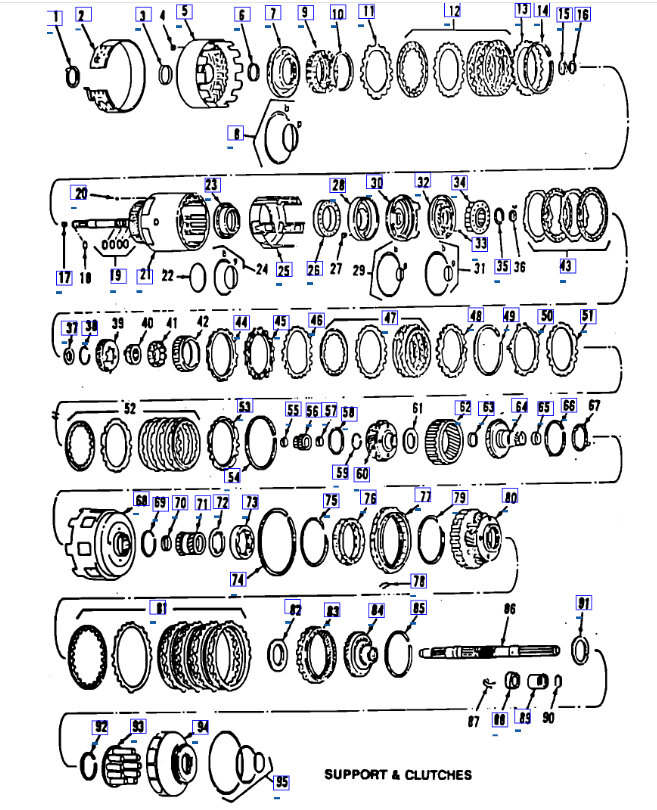 1 2 3 4 5 6 7 9 10 11 12 13 14 15 16
8 b a
20 23 28 30 32 34
17 18 19 21 22 b a 24 25 26 27 29 b a 33 b a 31 35 36 43
37 38 39 40 41 42 44 45 46 47 48 49 50 51
52 53 54 55 56 57 58 59 60 61 62 63 64 65 66 67
68 69 70 71 72 73 74 75 76 77 78 79 80
81 82 83 84 85 86 91
87 88 89 90
92 93 94 95
SUPPORT & CLUTCHES